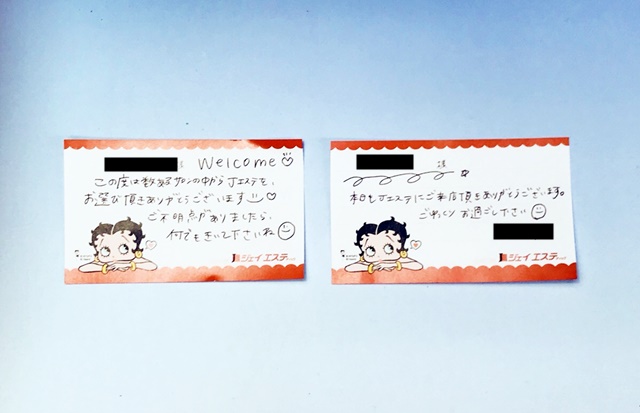 様 Welcome
この度は数あるサロンの中からJエステを、
お選び頂きありがとうございます
ご不明点がありましたら、
何でもきいて下さいね
ジェイエステ
様
本日もJエステにご来店頂きありがとうございます。
ごゆっくりお過ごし下さい
ジェイエステ